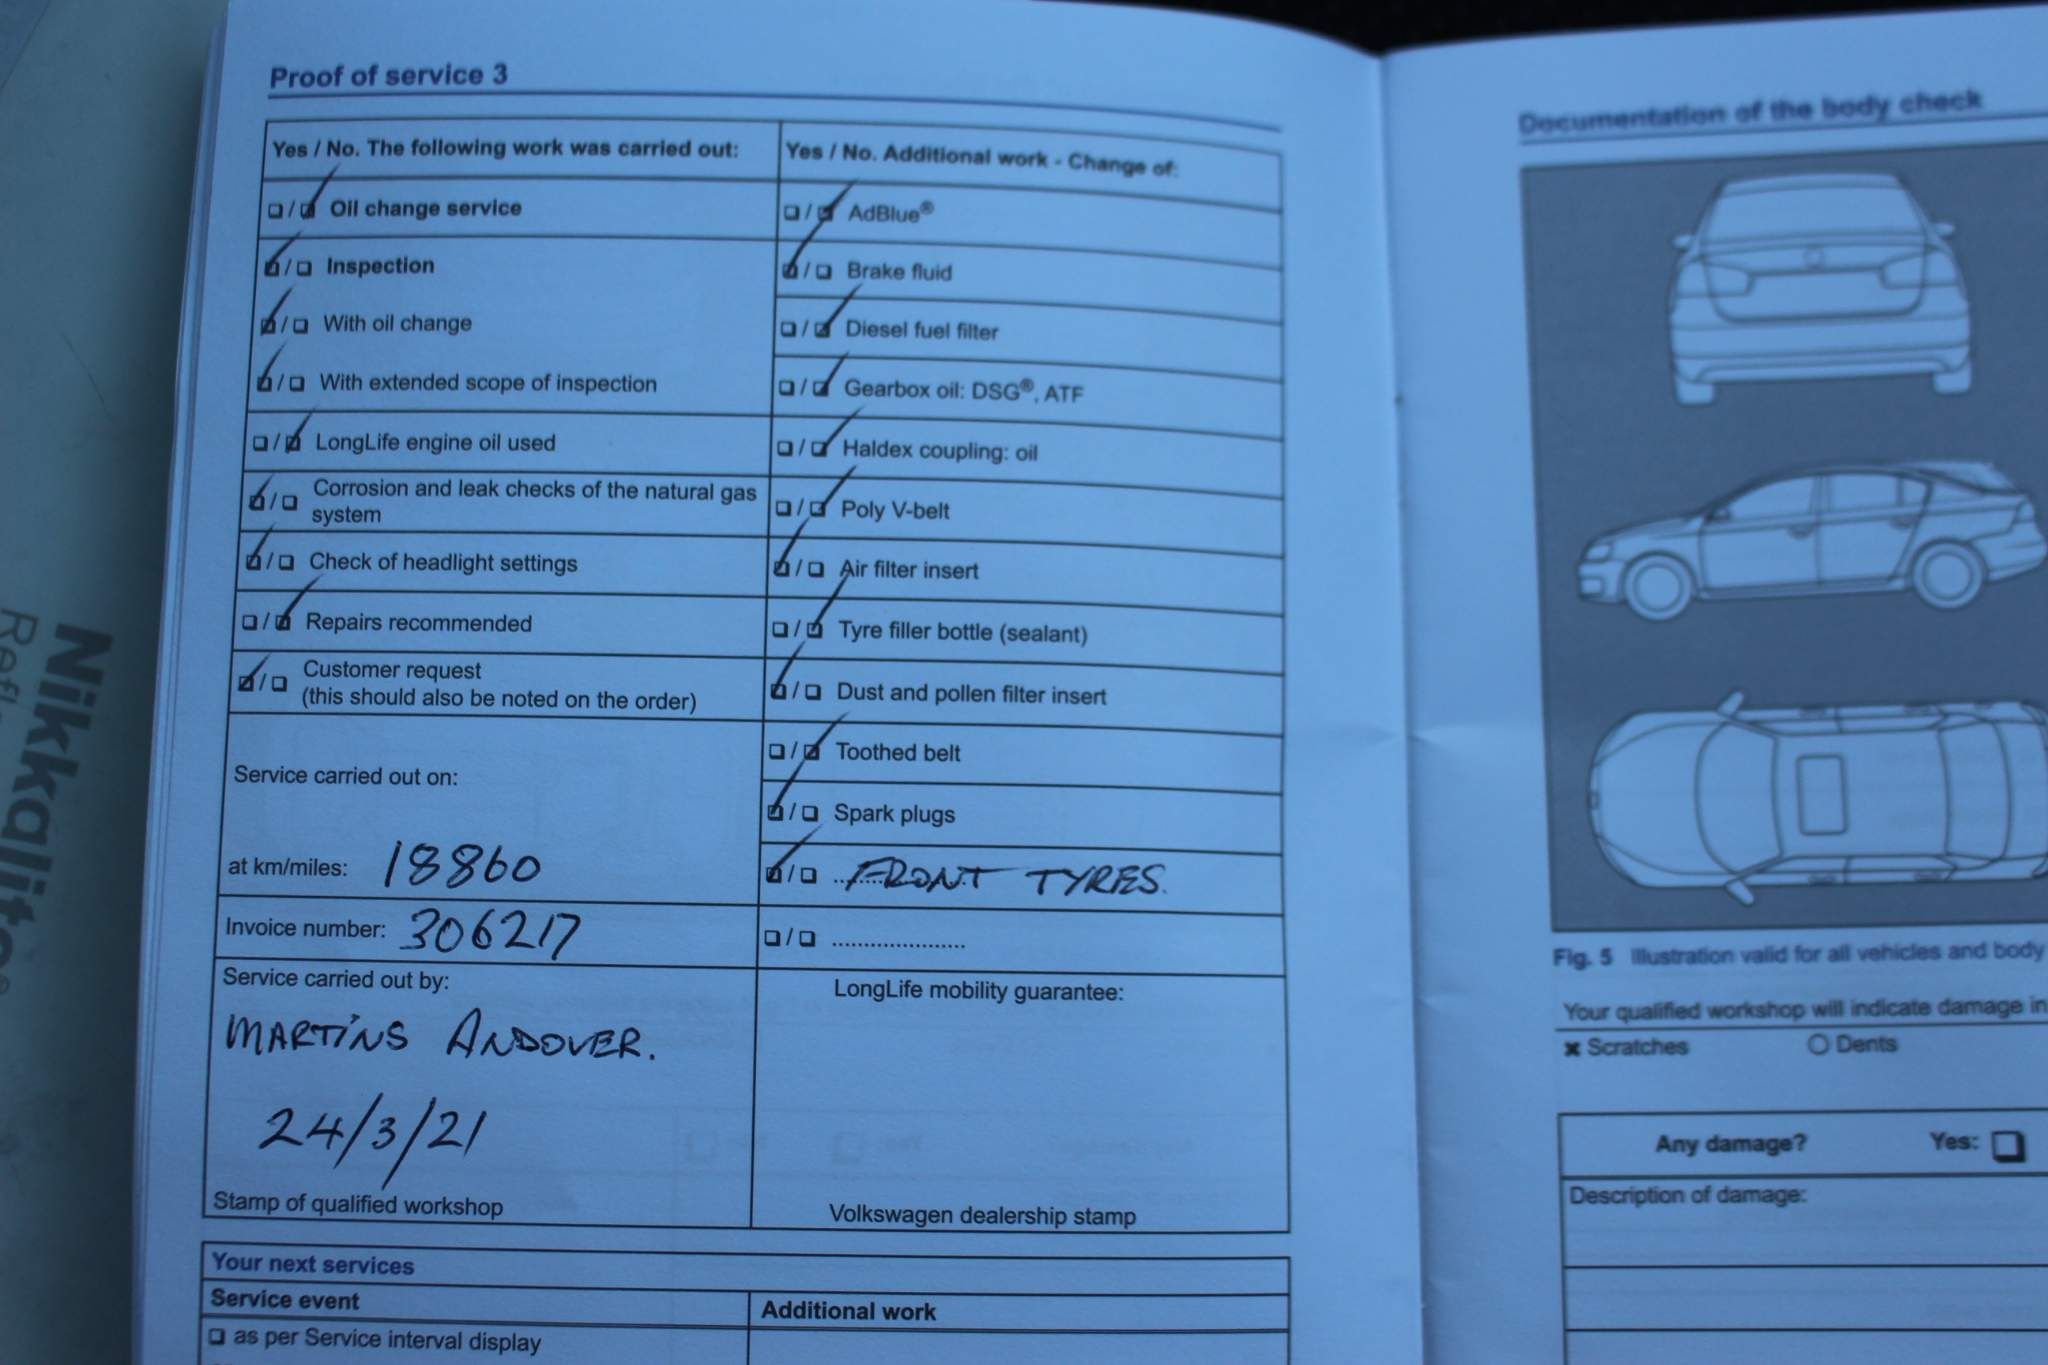 Proof of service 3
Yes / No. The following work was carried out:
Oil change service
Inspection
With oil change
With extended scope of inspection
LongLife engine oil used
Corrosion and leak checks of the natural gas
system
Check of headlight settings
Repairs recommended
Customer request
(this should also be noted on the order)
Service carried out on:
at km/miles: 18860
Invoice number: 306217
Service carried out by:
MARTINS ANDOVER.
24/3/21
Stamp of qualified workshop
Yes / No. Additional work - Change of:
AdBlue®
Brake fluid
Diesel fuel filter
Gearbox oil: DSG®, ATF
Haldex coupling: oil
Poly V-belt
Air filter insert
Tyre filler bottle (sealant)
Dust and pollen filter insert
Toothed belt
Spark plugs
FRONT TYRES.
LongLife mobility guarantee:
Volkswagen dealership stamp
Your next services
Service event
Additional work
as per Service interval display
Documentation of the body check
Fig. 5 Illustration valid for all vehicles and body
Your qualified workshop will indicate damage in
Scratches
Dents
Any damage? Yes:
Description of damage:
Nikkalite